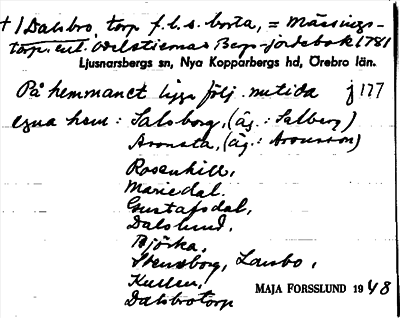 + 1 Dalsbro, torp f.l.s. borta, = Mässings-
torp enl. Odelstiernas Bergsjordebok 1781
Ljusnarsbergs sn, Nya Kopparbergs hd, Örebro län.
På hemmanet ligga följ. nutida j 177
egna hem: Salsborg, (äg.: Salberg)
Aronsta, (äg.: Aronsson)
Rosenhill,
Mariedal.
Gustafsdal,
Dalslund,
Björka,
Stensborg, Lansbo,
Kullen,
Dalsbrotorp
MAJA FORSSLUND 1948